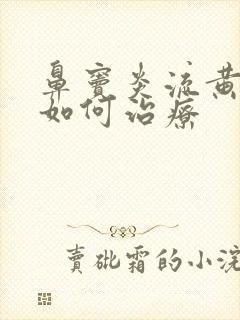 鼻窦炎流黄
如何治疗
賣砒霜的小浣